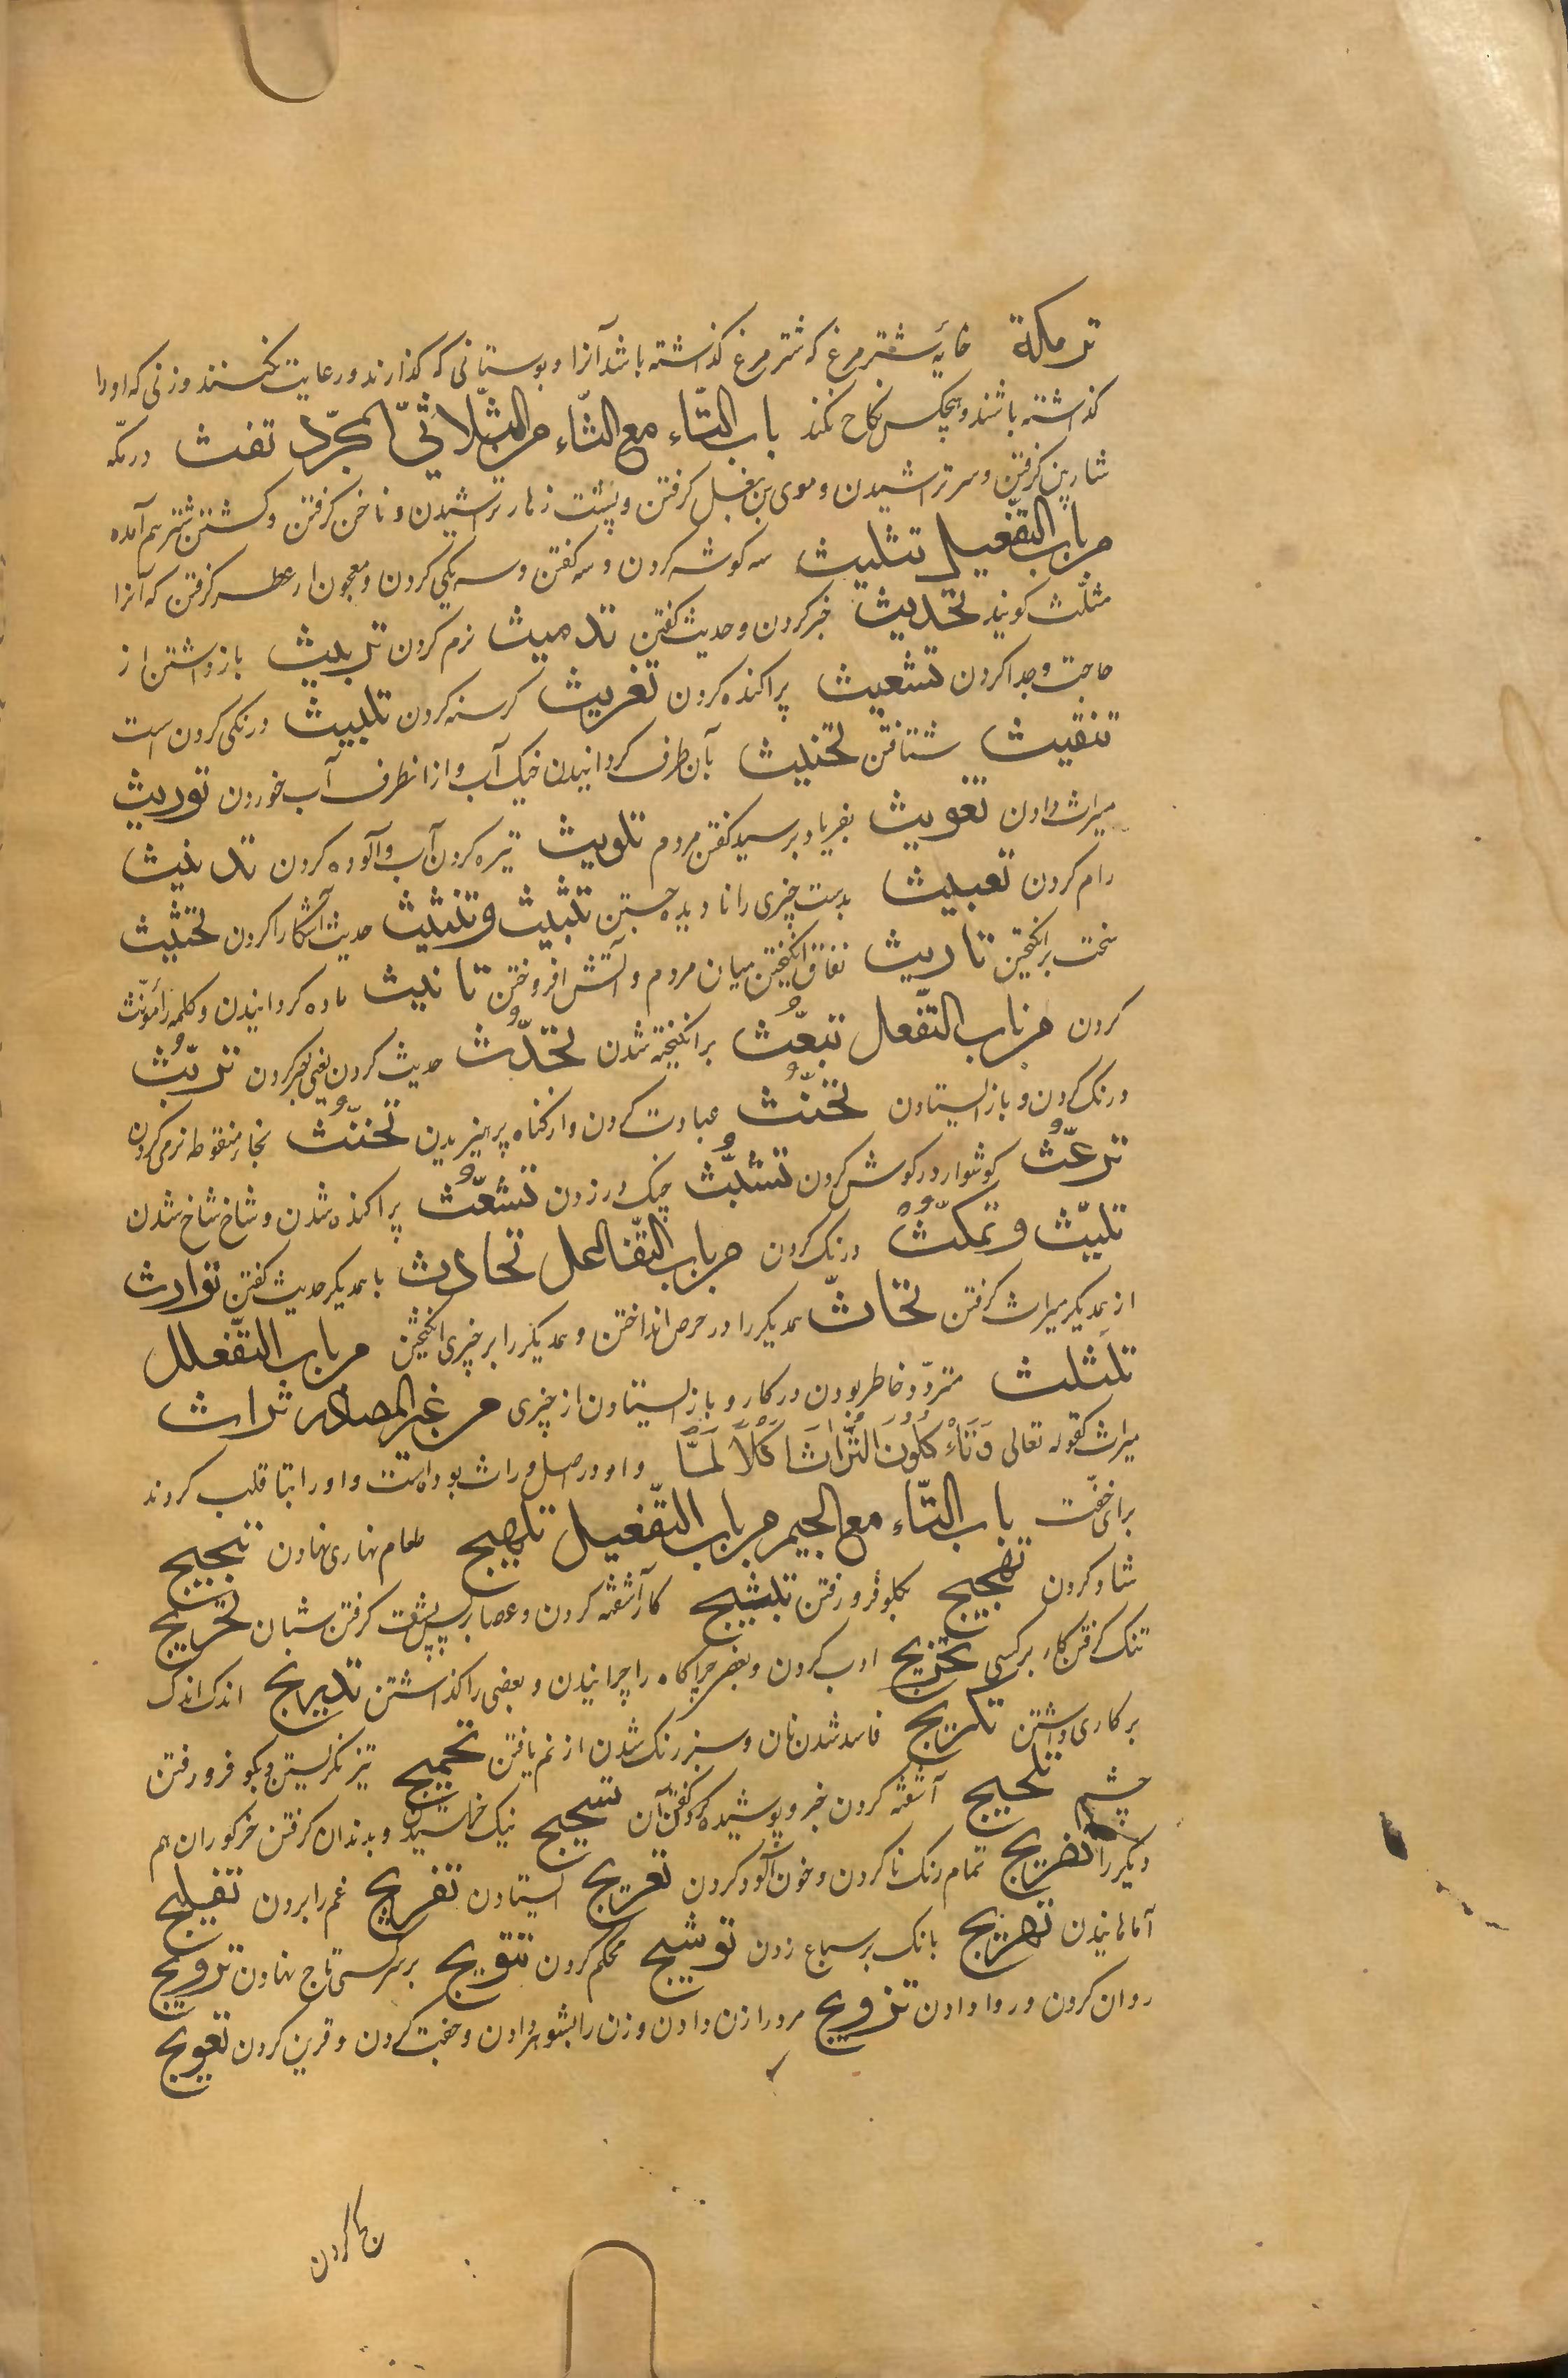 تریکة خایۀ شترمرغ که شترمرغ کذاشته باشد آنرا و بوستانی که کذارند و رعایت نکنند و زنی که اورا
کذاشته باشند و هیچکس نکاح نکند باب التّاء مع الثّاء من الثّلاثیّ المجرّد تفث در مکّه
شارب کرفتن و سر تراشیدن و موی بن بغل کرفتن و پشت زهار تراشیدن و ناخن کرفتن و کشتن شتر هم آمده
من باب التّفعیل تثلیث سه کوشه کردن و سه کفتن و سه یکی کردن و معجون از عطر کرفتن که آنرا
مثلّث کویند تحدیث خبر کردن و حدیث کفتن تدمیث نرم کردن تربیث باز داشتن از
حاجت و جدا کردن تشعیث پراکنده کردن تغریث کرسنه کردن تلبیث درنکی کردن است
تنقیث شتافتن تخنیث بآن طرف کردانیدن خیک آب و ازانطرف آب خوردن توریث
میراث دادن تغویث بفریاد برسید کفتن مردم تلویث تیره کردن آب و آلوده کردن تدییث
رام کردن تعییث بدست چیزی را نادیده جستن تبثیث و تنثیث حدیث آشکارا کردن تحثیث
سخت برانکیختن تاریث نفاق انکیختن میان مردم و آتش افروختن تانیث ماده کردانیدن و کلمه را مؤنّث
کردن من باب التّفعل تبعّث برانکیخته شدن تحدّث حدیث کردن یعنی خبر کردن تربّث
درنک کردن و باز ایستادن تحنّث عبادت کردن و از کناه پرهیزیدن تخنّث بخاء منقوطه نرمی کردن
ترعّث کوشوار در کوش کردن تشبّث چنک در زدن تشعّث پراکنده شدن و شاخ شاخ شدن
تلبّث و تمکّث درنک کردن من باب التّفاعل تحادث با همدیکر حدیث کفتن توارث
از همدیکر میراث کرفتن تحاثّ همدیکر را در حرص انداختن و همدیکر را بر چیزی انکیختن من باب التّفعلل
تلثلث متردّد خاطر بودن در کار و باز ایستادن از چیزی من غیر المصادر تراث
میراث کقوله تعالی وَتَأْكُلُونَ التُّرَاثَ أَكْلًا لَمًّا و او در اصل وراث بوده است و او را بتا قلب کردند
برای خفّت باب التّاء مع الجیم من باب التّفعیل تلهیج طعام نهاری نهادن تبجیج
شاد کردن تفجیج بکلو فرو رفتن تثبیج کار آشفته کردن و عصا بر پس پشت کرفتن شبان تحریج
تنک کرفتن کار بر کسی تخریج ادب کردن و بعضی چراکاه را چرانیدن و بعضی را کذاشتن تدریج اندک اندک
بر کاری داشتن تکریج فاسد شدن نان و سبز رنک شدن از نم یافتن تحمیج تیز نکریستن و بکو فرو رفتن
چشم تلحیج آشفته کردن خبر و پوشیده کردن آن تسحیج نیک خراشیدن و بدندان کرفتن خرکوران هم
دیکر را تضریج تمام رنک نا کردن و خون آلود کردن تعریج ایستادن تفریج غم را بردن تفلیج
آماهانیدن تهزیج بانک بر سباع زدن توشیج محکم کردن تتویج بر سر کسی تاج نهادن ترویج
روان کردن و روا دادن تزویج مرد را زن دادن و زن را بشوهر دادن و جفت کردن و قرین کردن تعویج
کج کردن